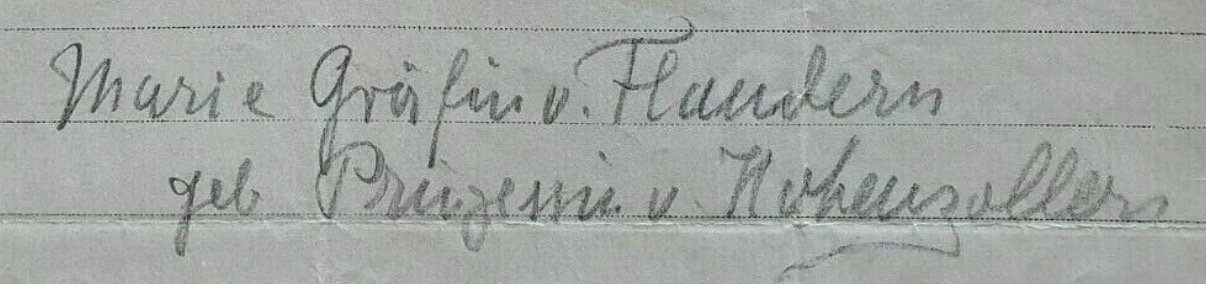 Marie Gräfin v. Flandern
geb Prinzessin v. Hohenzollern